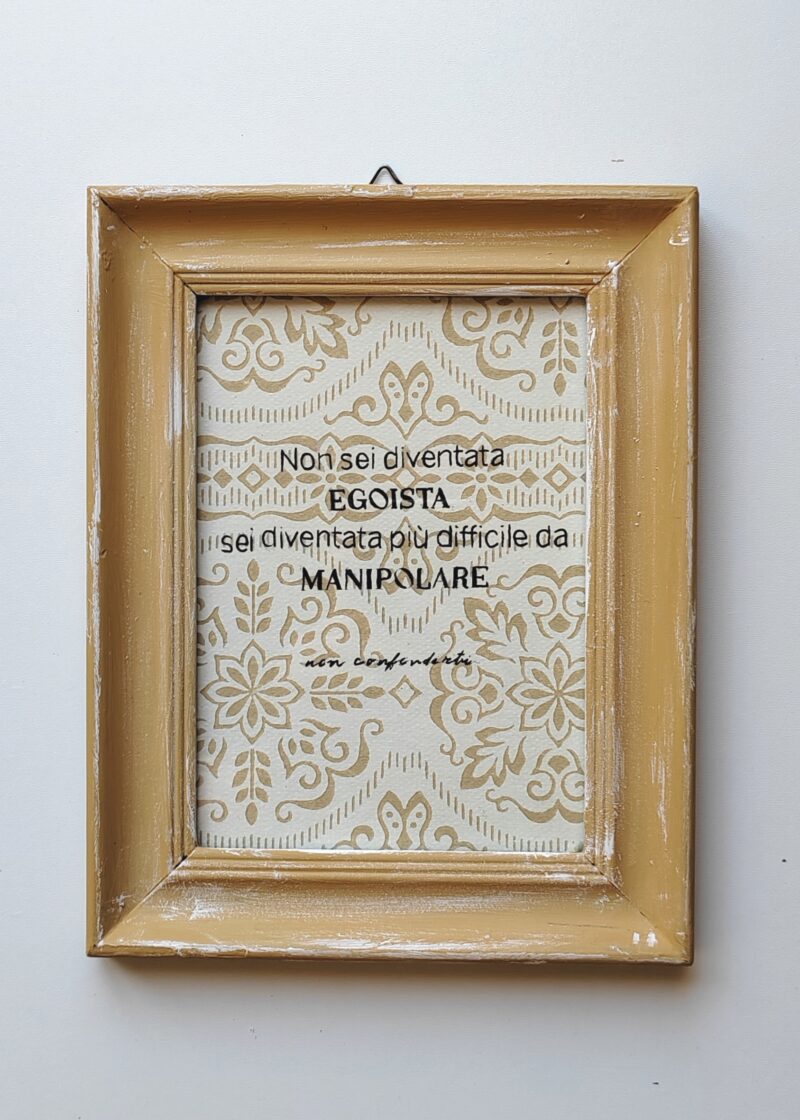 Non sei diventata
EGOISTA
sei diventata più difficile da
MANIPOLARE
non confonderti